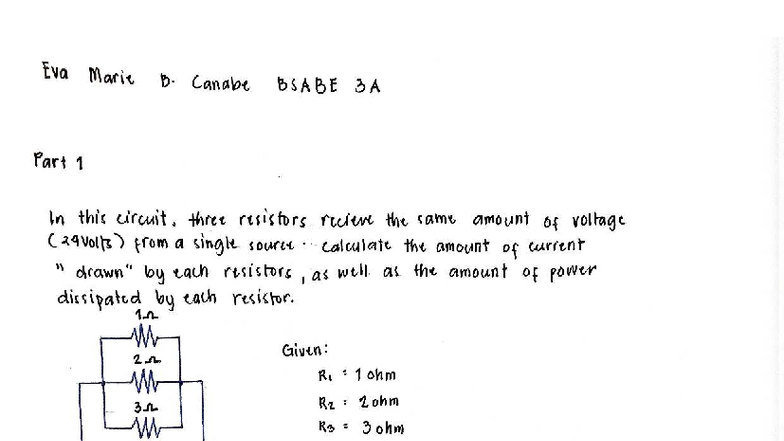 Eva Marie B. Canabe BSABE 3A
Part 1
In this circuit, three resistors recieve the same amount of voltage
(24volts) from a single source.. calculate the amount of current
"drawn" by each resistors, as well as the amount of power
dissipated by each resistor.
1Ω
2Ω
3Ω
Given:
R1 : 1 ohm
R2 : 2 ohm
R3 = 3 ohm